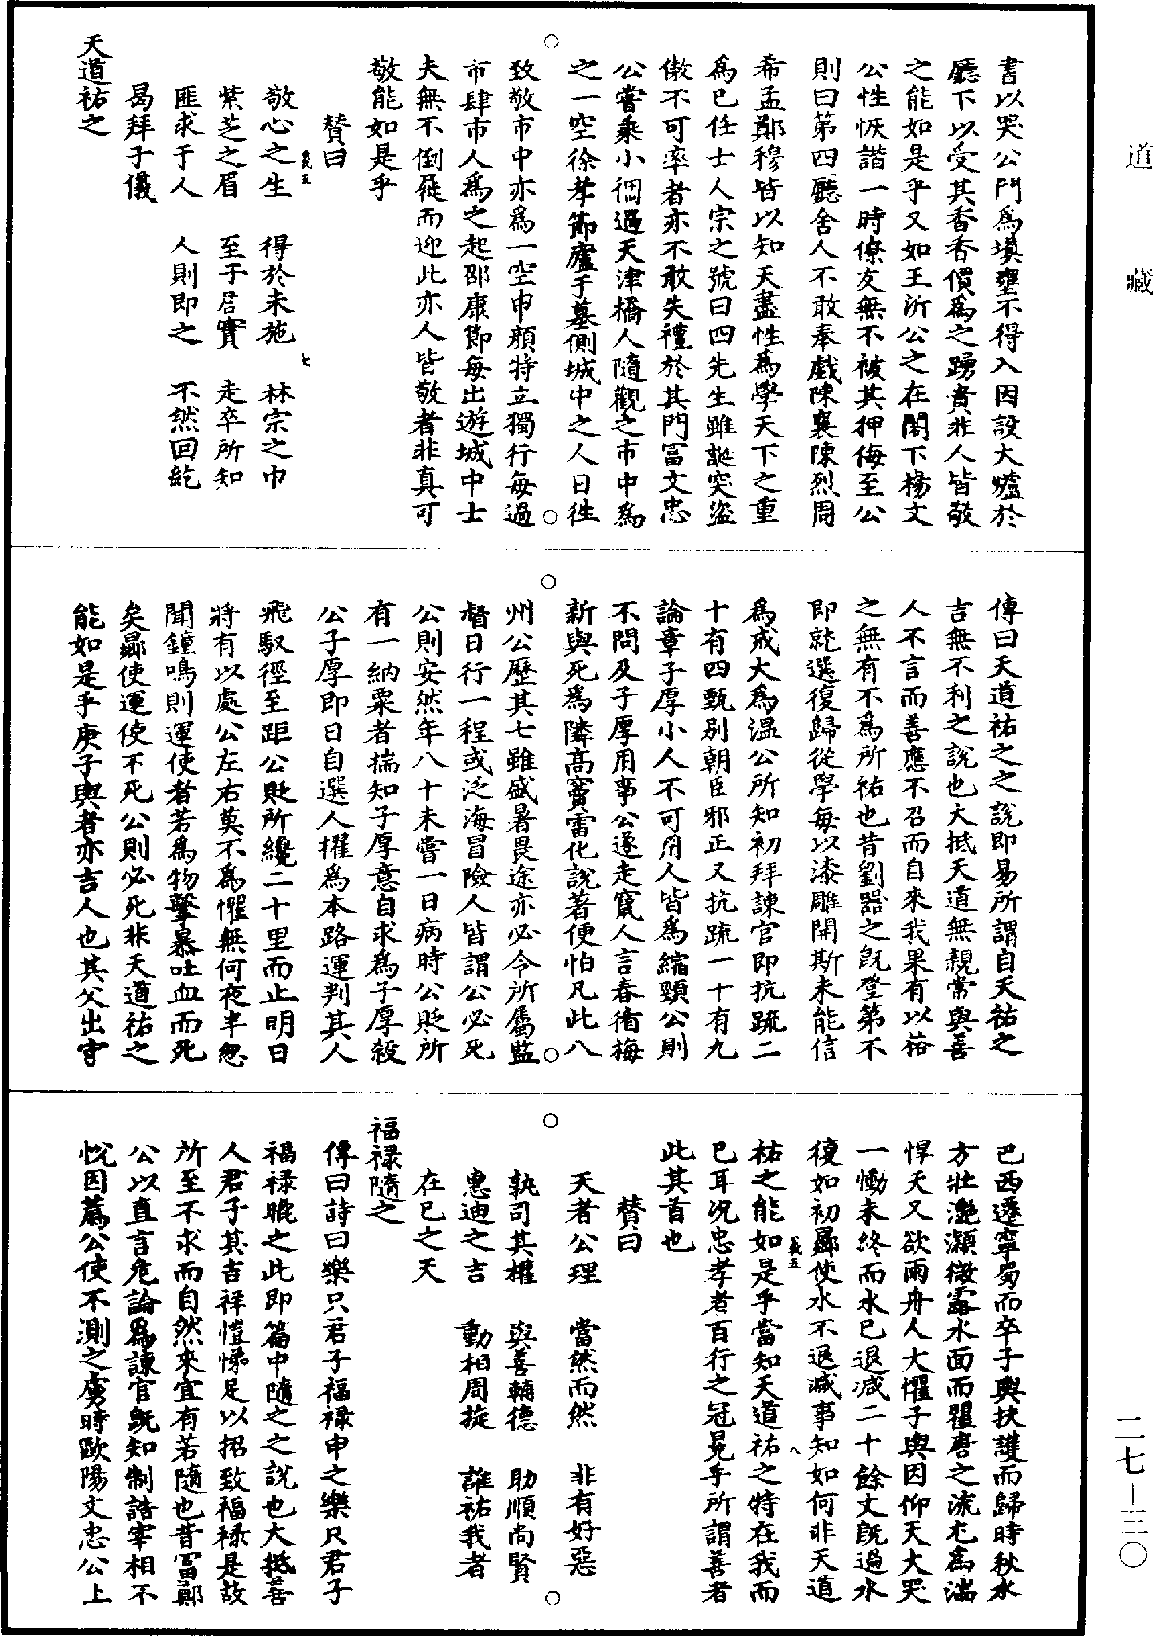 道藏
書以哭公門為填壅不得入因設大爐於
廳下以受其香香價為之踴貴非人皆敬
之能如是乎又如王所公之在閣下楊文
公性恢諧一時僚友無不被其押侮至公
則曰第四廳舍人不敢奉戲陳襄陳烈周
希孟鄭穆皆以知天盡性為學天下之重
為已任士人宗之號曰四先生雖誕突盜
傲不可率者亦不敢失禮於其門富文忠
公嘗乘小𨏥過天津橋人隨觀之市中為
之一空徐孝節廬于墓側城中之人日往
致敬市中亦為一空申顏特立獨行每過
市肆市人為之起邵康節每出遊城中士
夫無不倒屣而迎此亦人皆敬者非真可
敬能如是乎
贊曰
敬心之生 得於未施 林宗之巾
紫芝之眉 至于君實 走卒所知
匪求于人 人則即之 不然回紇
曷拜子儀
天道祐之
傳曰天道祐之之說即易所謂自天祐之
吉無不利之說也大抵天道無親常與善
人不言而善應不召而自來我果有以祐
之無有不為所祐也昔劉器之既登第不
即就選復歸從學每以漆雕開斯未能信
為戒大為溫公所知初拜諫官即抗疏二
十有四甄别朝臣邪正又抗疏一十有九
論章子厚小人不可用人皆為縮頸公則
不問及子厚用事公遂走竄人言春循梅
新與死為隣高竇雷化說著便怕凡此八
州公歷其七雖盛暑畏途亦必令所屬監
督日行一程或泛海冒險人皆謂公必死
公則安然年八十未嘗一日病時公貶所
有一納粟者揣知子厚意自求為子厚殺
公子厚即日自選人擢為本路運判其人
飛馭徑至距公貶所纔二十里而止明日
將有以處公左右莫不為懼無何夜半忽
聞鐘鳴則運使者若為物擊暴吐血而死
矣曏使運使不死公則必死非天道祐之
能如是乎庚子輿者亦吉人也其父出守
巴西遷寧蜀而卒子輿扶護而歸時秋水
方壯灔澦微露水面而瞿唐之流尤為湍
悍天又欲雨舟人大懼子輿因仰天大哭
一慟未終而水已退減二十餘丈既過水
復如初曏使水不退減事知如何非天道
祐之能如是乎當知天道祐之特在我而
已耳况忠孝者百行之冠冕乎所謂善者
此其首也
贊曰
天者公理 當然而然 非有好惡
孰司其權 與善輔德 助順尚賢
惠迪之吉 動相周旋 誰祐我者
在已之天
福祿隨之
傳曰詩曰樂只君子福祿申之樂只君子
福祿膍之此即篇中隨之之說也大抵善
人君子其吉祥愷悌足以招致福祿是故
所至不求而自然來宜有若隨也昔富鄭
公以直言危論為諫官既知制誥宰相不
悅因薦公使不測之虜時歐陽文忠公上
二七—三〇